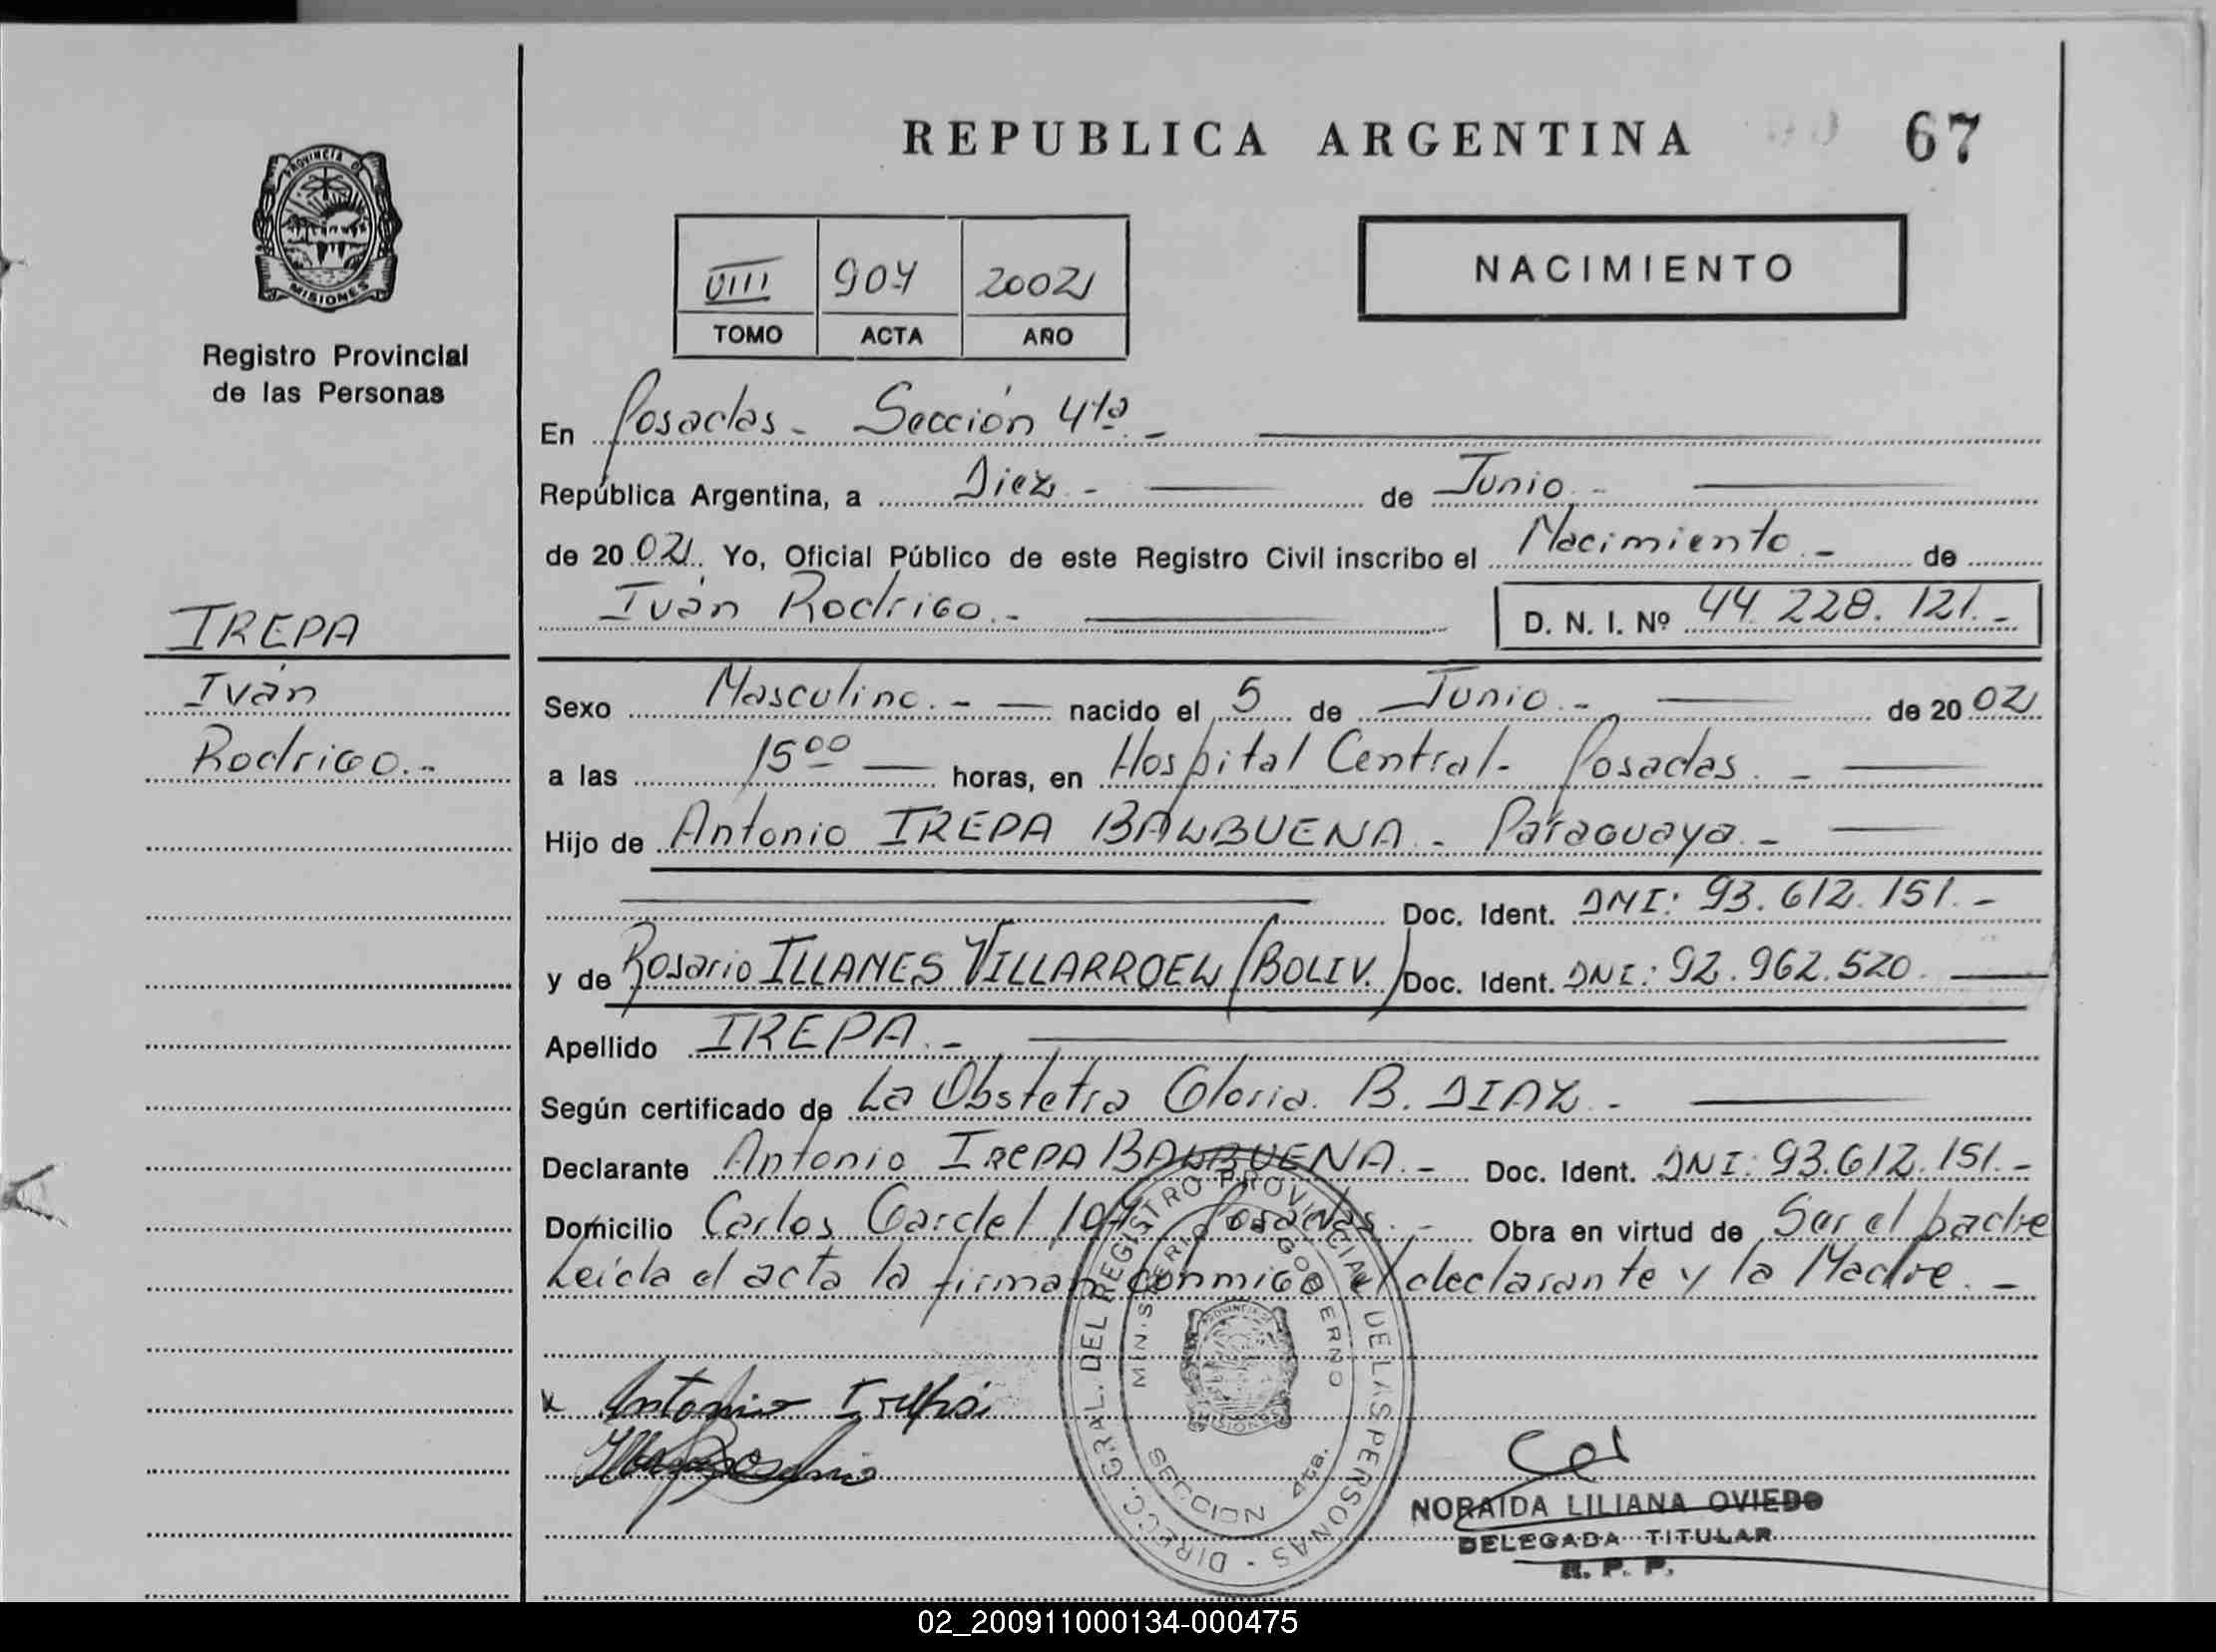 REPUBLICA ARGENTINA
67
PROVINCIA DE
MISIONES
Registro Provincial
de las Personas
VIII 904 2002
TOMO ACTA AÑO
NACIMIENTO
En Posadas - Sección 4ta -
República Argentina, a Diez - de Junio -
de 20 02. Yo, Oficial Público de este Registro Civil inscribo el Nacimiento - de
Iván Rodrigo.- D. N. I. Nº 44.228.121.-
IREPA
Iván
Rodrigo.-
Sexo Masculino.- nacido el 5 de Junio.- de 20 02
a las 15 00 horas, en Hospital Central - Posadas. -
Hijo de Antonio IREPA BALBUENA - Paraguaya. -
Doc. Ident. DNI: 93.612.151.-
y de Rosario ILLANES VILLARROEL (BOLIV.) Doc. Ident. DNI: 92.962.520.
Apellido IREPA.-
Según certificado de La Obstetra Gloria B. DIAZ.-
Declarante Antonio IREPA BALBUENA.- Doc. Ident. DNI: 93.612.151.-
Domicilio Carlos Gardel Posadas.- Obra en virtud de Ser el padre
Leída el acta la firman conmigo el declarante y la Madre.-
x Antonio Irepa
DIRECC. GRAL. DEL REGISTRO PROVINCIAL DE LAS PERSONAS
MINISTERIO DE GOBIERNO
SECCION 4ta.
NORAIDA LILIANA OVIEDO
DELEGADA TITULAR
R. P. P.
02_200911000134-000475